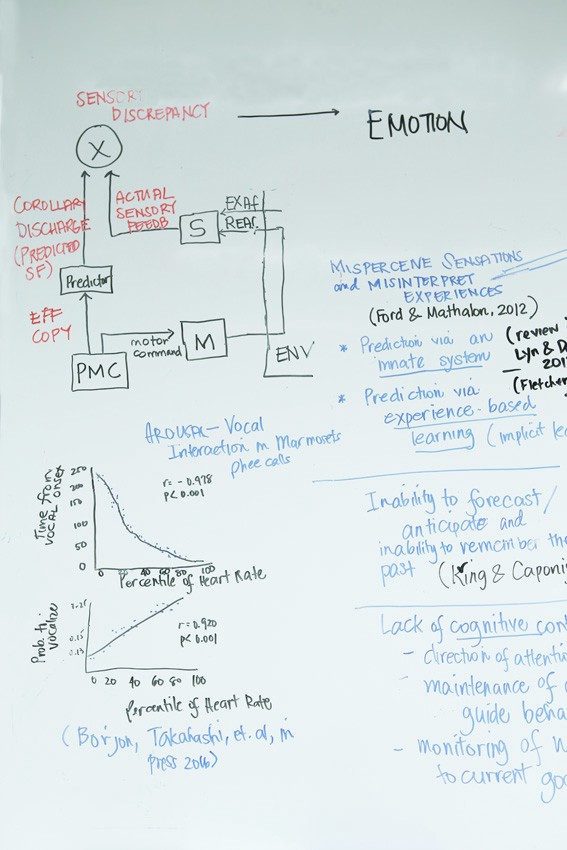 SENSORY
DISCREPANCY
EMOTION
X
COROLLARY
DISCHARGE
(PREDICTED
SF)
ACTUAL
SENSORY
FEEDB
S
EXAF
REAF
Predictor
EFF
COPY
motor
command
M
PMC
ENV
MISPERCEIVE SENSATIONS
and MISINTERPRET
EXPERIENCES
(Ford & Mathalon, 2012)
* Prediction via an
innate system
(review
Lyn & D
201
(Fletcher
* Prediction via
experience-based
learning (implicit lea
AROUSAL - Vocal
Interaction in Marmosets
phee calls
Time from
VOCAL onset
250
200
150
100
50
0
r = - 0.978
p < 0.001
0 20 40 60 80 100
Percentile of Heart Rate
Prob. to
vocalize
r = 0.920
p < 0.001
0 20 40 60 80 100
Percentile of Heart Rate
(Borjon, Takahashi, et. al, in
press 2016)
Inability to forecast/
anticipate and
inability to remember the
past (King & Caponi
Lack of cognitive con
- direction of attenti
- maintenance of
guide beha
- monitoring of
to current goa